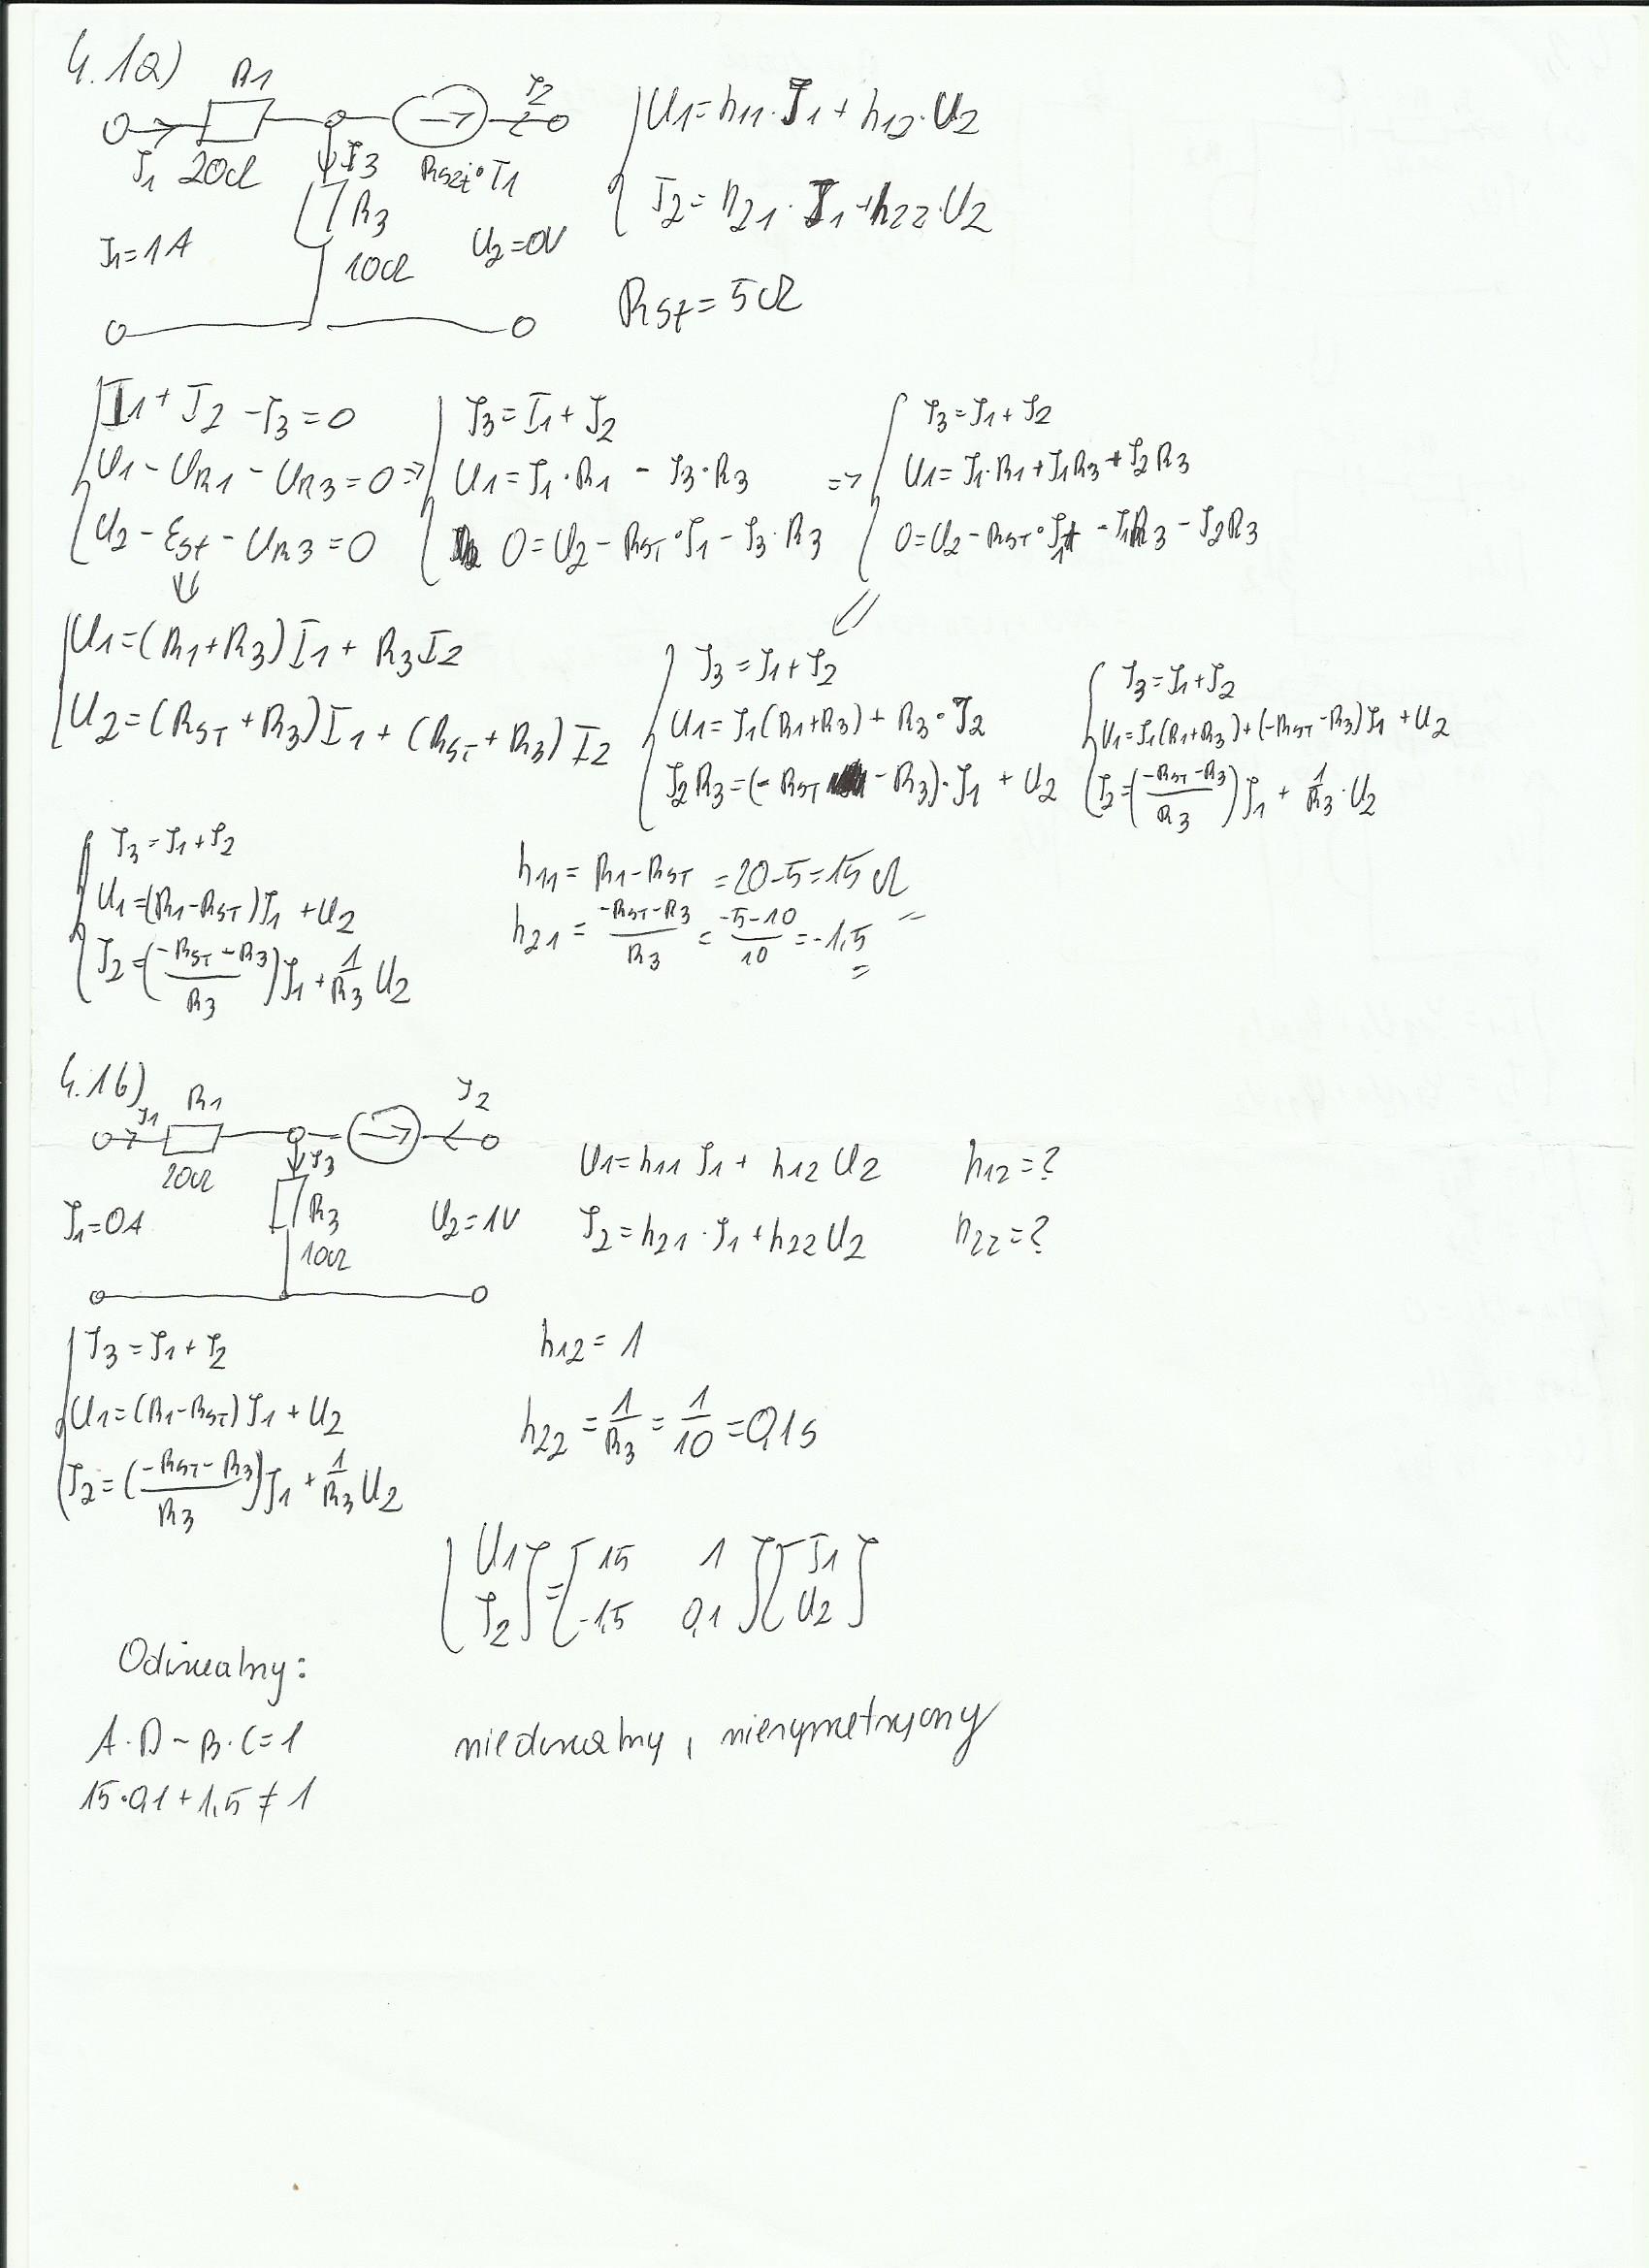 4.1a)
R1
I2
I1 20Ω
I3
Rszt·I1
R3
I1=1A
10Ω
U2=0V
U1=h11·I1+h12·U2
I2=h21·I1+h22·U2
Rst=5Ω
I1+I2-I3=0
U1-UR1-UR3=0 =>
U2-Est-UR3=0
I3=I1+I2
U1=I1·R1-I3·R3 =>
0=U2-RST·I1-I3·R3
I3=I1+I2
U1=I1·R1+I1R3+I2R3
0=U2-RST·I1-I1R3-I2R3
U1=(R1+R3)I1+R3I2
U2=(RST+R3)I1+(RST+R3)I2
I3=I1+I2
U1=I1(R1+R3)+R3·I2
I2R3=(-RST-R3)·I1+U2
I3=I1+I2
U1=I1(R1+R3)+(-RST-R3)I1+U2
I2=(-RST-R3/R3)I1+1/R3·U2
I3=I1+I2
U1=(R1-RST)I1+U2
I2=(-RST-R3/R3)I1+1/R3 U2
h11=R1-RST=20-5=15Ω
h21=-RST-R3/R3=-5-10/10=-1,5
4.1b)
I1
R1
I2
20Ω
I3
R3
10Ω
I1=0A
U2=1V
U1=h11 I1+h12 U2
h12=?
I2=h21·I1+h22 U2
h22=?
I3=I1+I2
U1=(R1-RST)I1+U2
I2=(-RST-R3/R3)I1+1/R3 U2
h12=1
h22=1/R3=1/10=0,1S
[U1 I2]=[15 1
-1,5 0,1][I1 U2]
A·D-B·C=1
15·0,1+1,5≠1